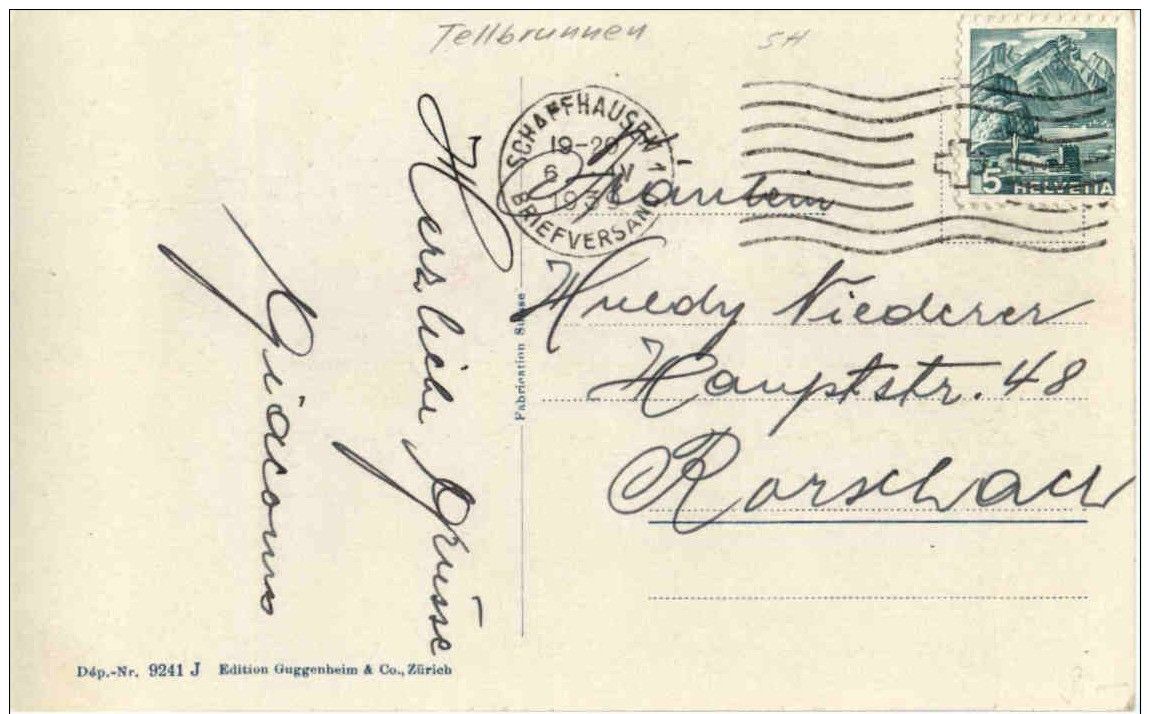 Tellbrunnen SH
SCHAFFHAUSEN 1
19-20
6 IV
BRIEFVERSAND
5 HELVETIA
Fräulein
Huldy Niederer
Hauptstr. 48
Rorschach
Herzliche Grüsse
Giacomo
Fabrication Suisse
Dép.-Nr. 9241 J Edition Guggenheim & Co., Zürich